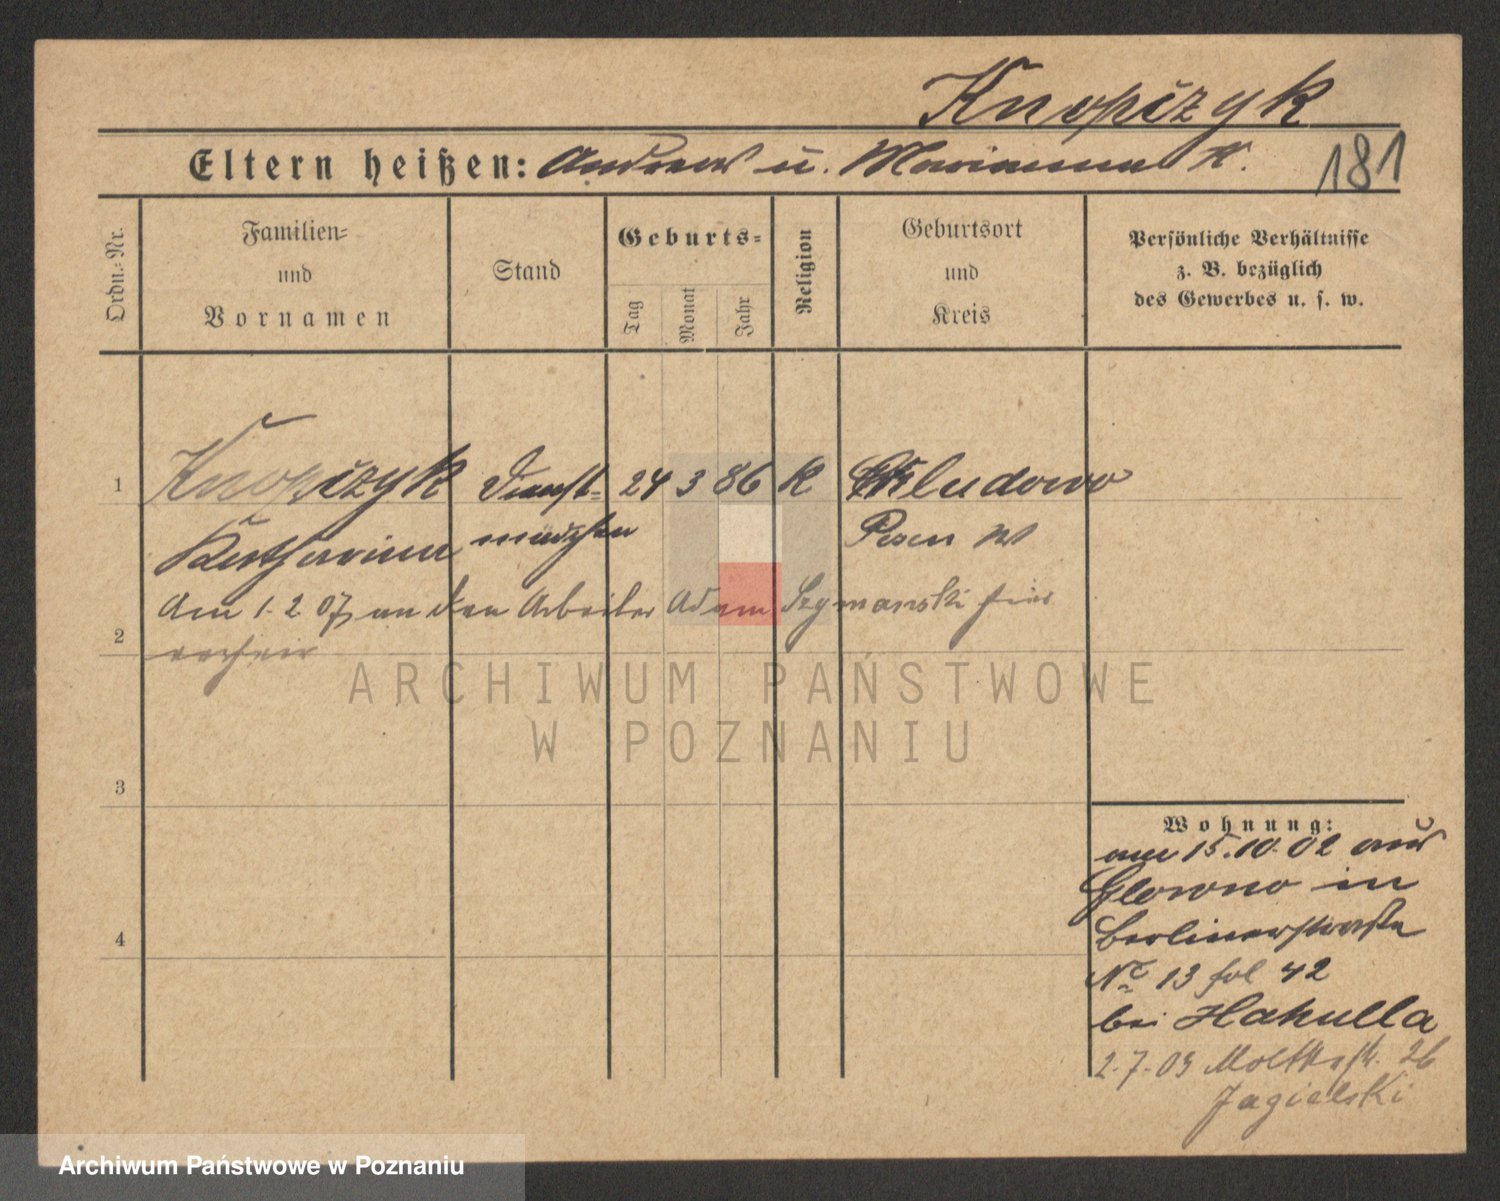 Knopczyk
Eltern heißen: Andreas u. Marianna K.
181
Ordn.-Nr.
Familien-
und
Vornamen
Stand
Geburts-
Tag
Monat
Jahr
Religion
Geburtsort
und
Kreis
Persönliche Verhältnisse
z. B. bezüglich
des Gewerbes u. s. w.
1 Knopczyk Dienst- 24 3 86 K Chludowo
Katharina mädchen Posen W
Am 1. 2. 07 an den Arbeiter Adam Szymanski hier
2
ARCHIWUM PAŃSTWOWE
W POZNANIU
3
4
Wohnung:
am 15.10.02 aus
Glowno in
Berlinerstraße
No 13 fol 42
bei Hakulla
2.7.03 Moltkestr. 26
Jagielski
Archiwum Państwowe w Poznaniu